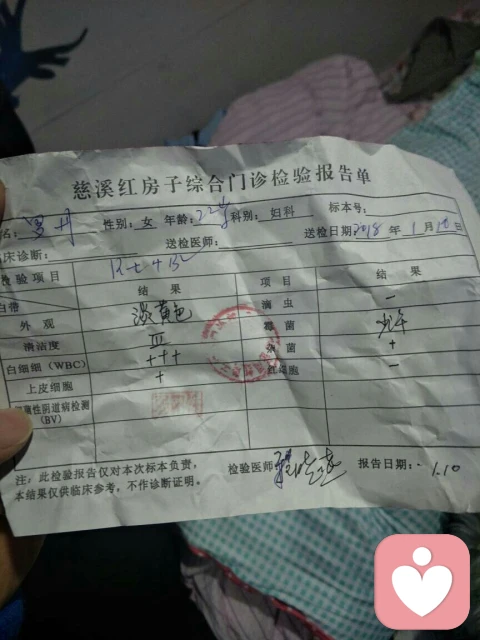 慈溪红房子综合门诊检验报告单
名: 性别: 女 年龄: 22岁 科别: 妇科 标本号:
床诊断: 送检医师: 送检日期2018年1月10日
检验项目 结果 项目 结果
白带
外观 淡黄色 滴虫 －
清洁度 III 霉菌 少许
白细胞(WBC) +++ 杂菌 +
上皮细胞 + 红细胞 －
菌性阴道病检测
(BV)
注：此检验报告仅对本次标本负责， 检验医师 报告日期: 1.10
本结果仅供临床参考，不作诊断证明。